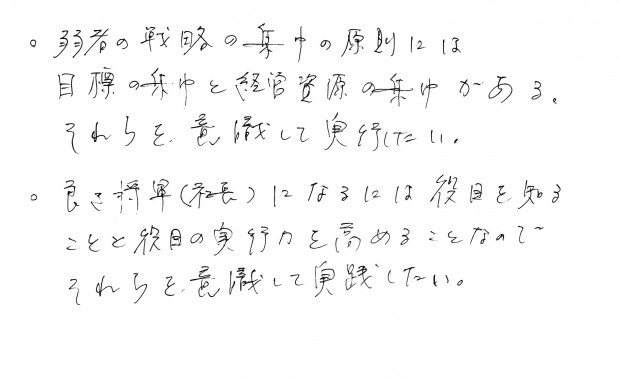 。弱者の戦略の集中の原則には
目標の集中と経営資源の集中がある。
それらを意識して実行したい。
。良き将軍(社長)になるには役目を知る
ことと役目の実行力を高めることなので
それらを意識して実践したい。